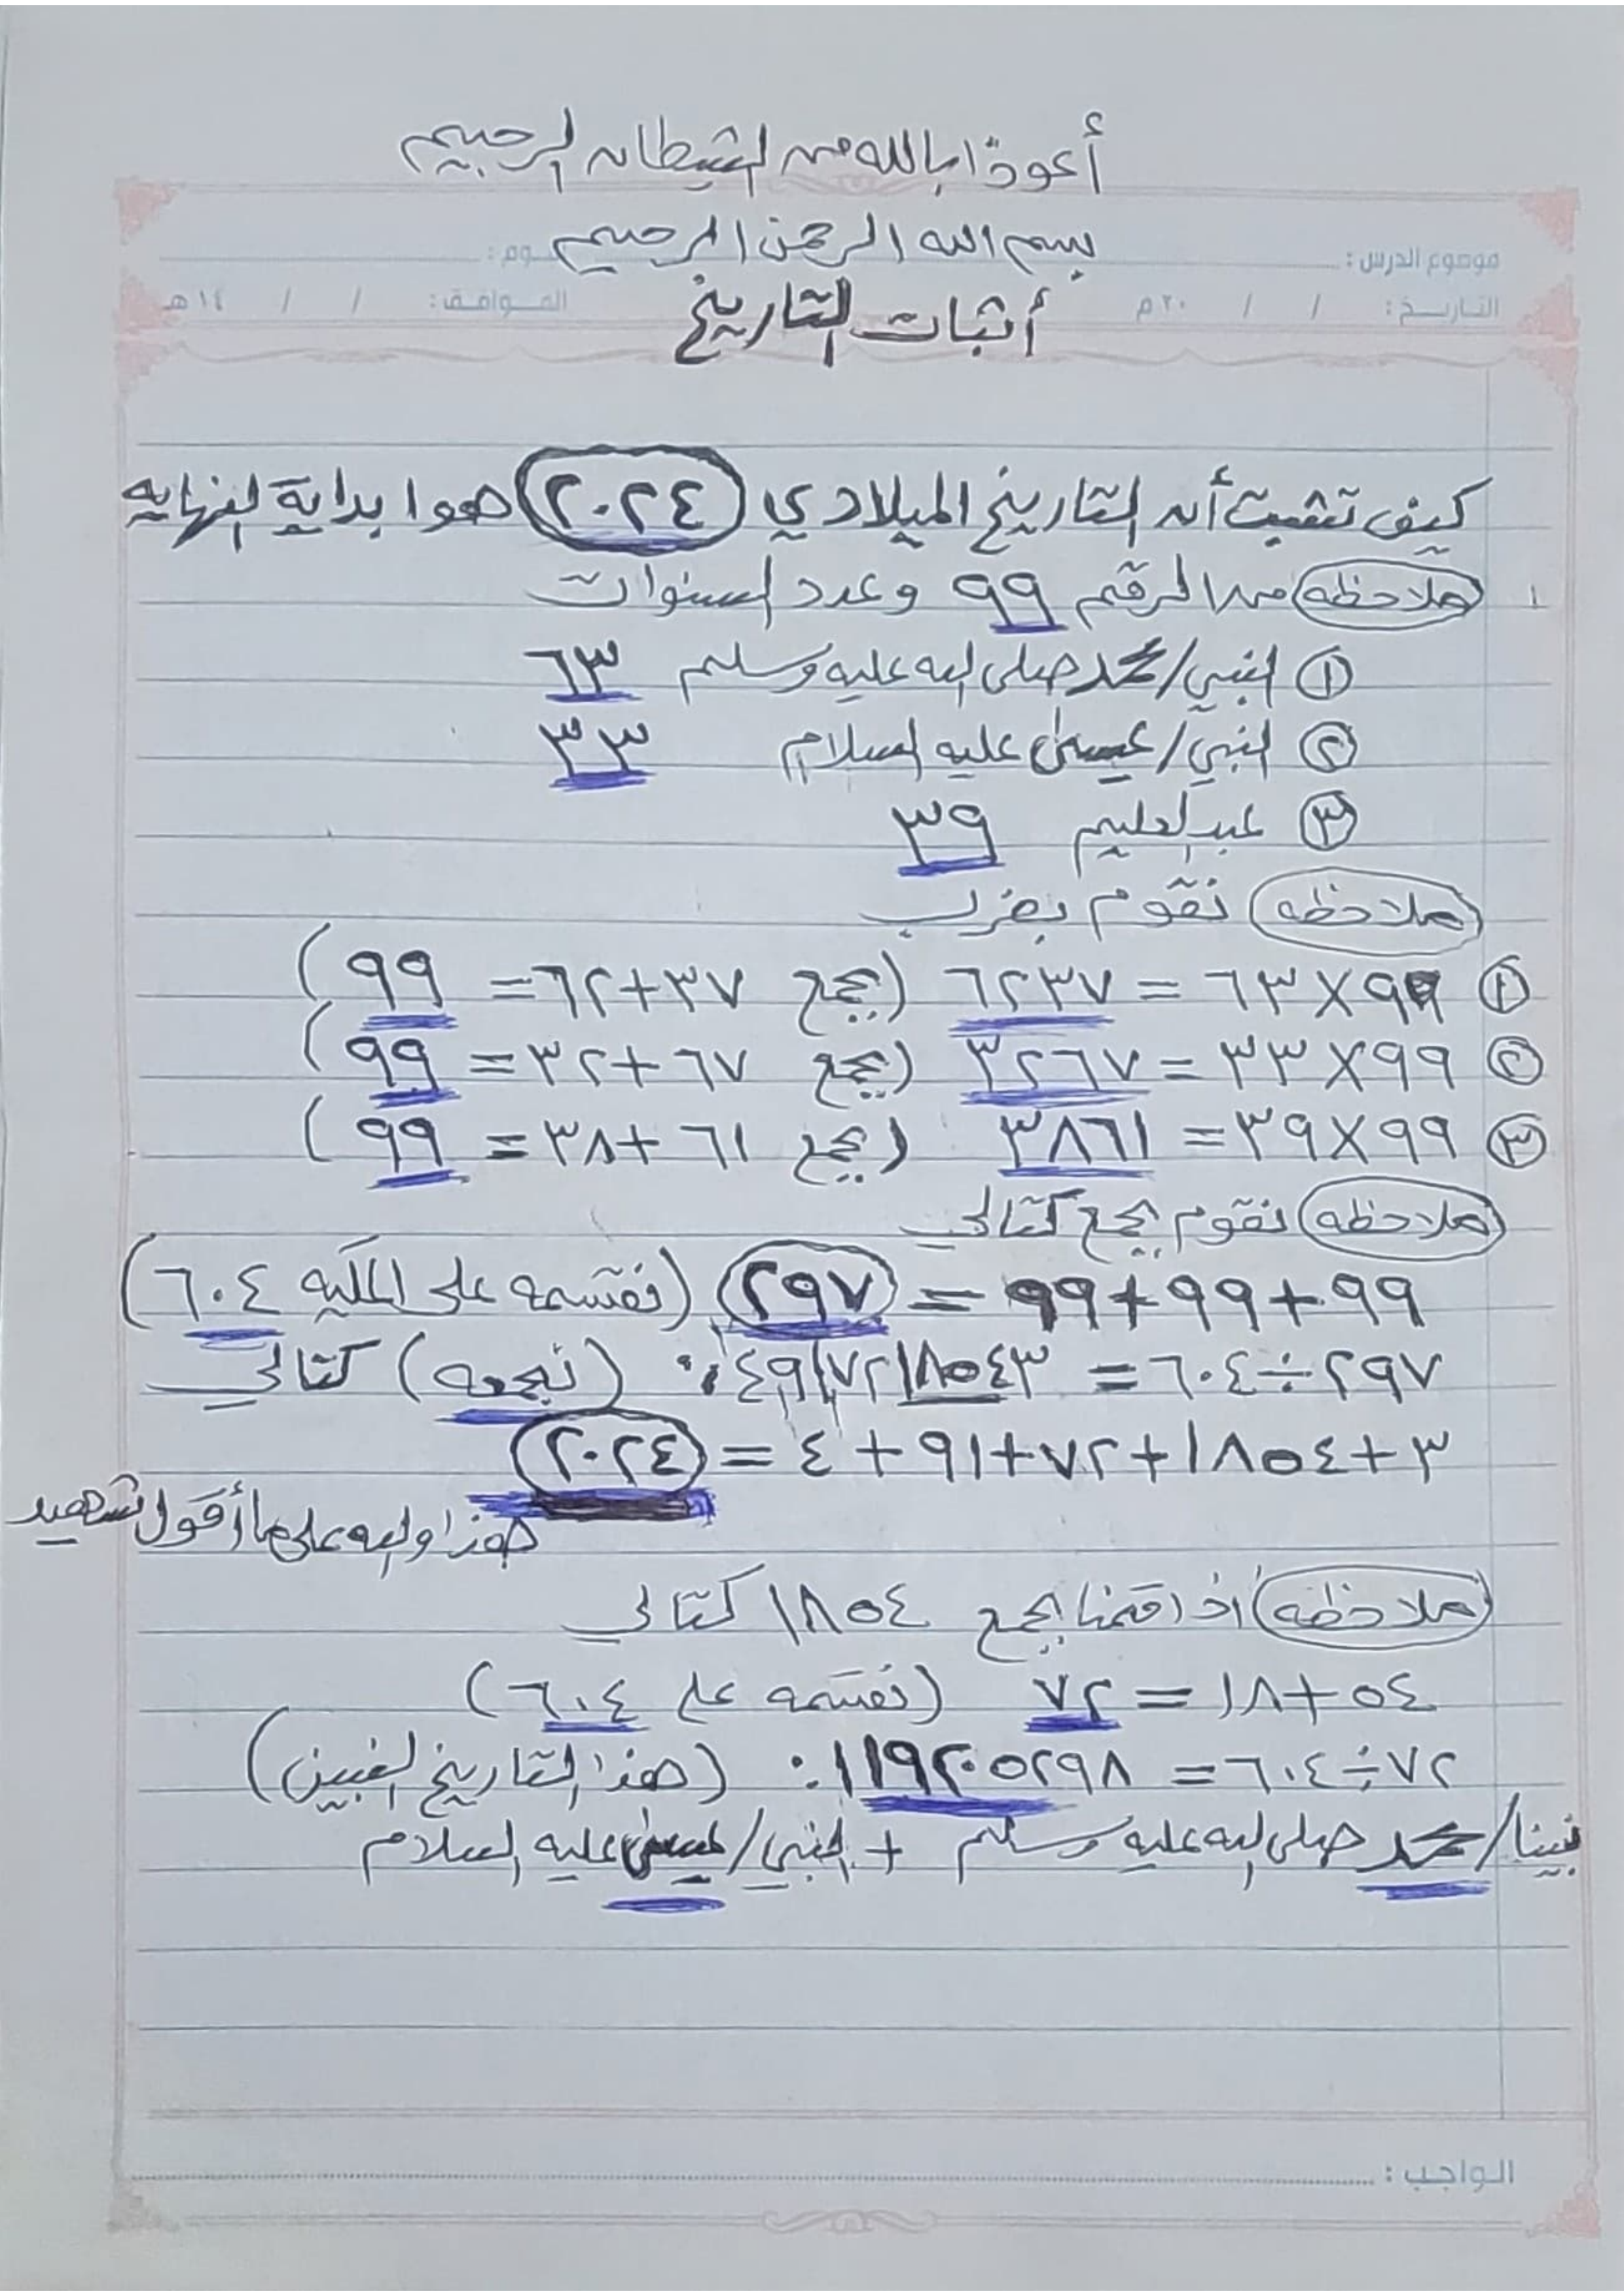 أعوذا بالله من الشيطان الرجيم
بسم الله الرحمن الرحيم
موضوع الدرس :
وم :
التاريخ : / / ٢٠م الموافق : / / ١٤هـ
أثبات التاريخ
كيف تثبت أن التاريخ الميلادي ٢٠٢٤ هوا بداية النهايه
ملاحظه من الرقم ٩٩ وعدد السنوات
① النبي/محمد صلى الله عليه وسلم ٦٣
② النبي/عيسى عليه السلام ٣٣
③ عبدالعليم ٣٩
ملاحظه نقوم بضرب
① ٩٩×٦٣ = ٦٢٣٧ (يجمع ٣٧+٦٢= ٩٩)
② ٩٩×٣٣ = ٣٢٦٧ (يجمع ٦٧+٣٢= ٩٩)
③ ٩٩×٣٩ = ٣٨٦١ (يجمع ٦١+٣٨= ٩٩)
ملاحظه نقوم بجمع كتالي
٩٩+٩٩+٩٩ = ٢٩٧ (نقسمه على الملكيه ٦٠٤)
٢٩٧÷٦٠٤ = ٠,٤٩١٧٢١٨٥٤٣ (نجمعه) كتالي
٣+١٨٥٤+٧٢+٩١+٤ = ٢٠٢٤
هذا والله على ما أقول شهيد
ملاحظه اذا قمنا بجمع ١٨٥٤ كتالي
٥٤+١٨ = ٧٢ (نقسمه على ٦٠٤)
٧٢÷٦٠٤ = ٠,١١٩٢٠٥٢٩٨ (هذا التاريخ النبين)
نبينا/محمد صلى الله عليه وسلم + النبي/عيسى عليه السلام
الواجب :